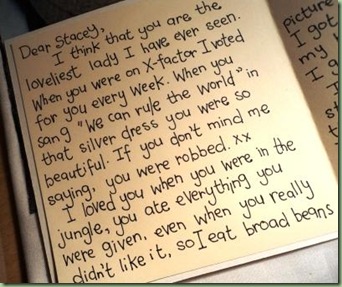 Dear Stacey,
I think that you are the
loveliest lady I have ever seen.
When you were on X-factor I voted
for you every week. When you
sang "We can rule the world" in
that silver dress you were so
beautiful. If you don't mind me
saying, you were robbed. xx
I loved you when you were in the
jungle, you ate everything you
were given, even when you really
didn't like it, so I eat broad beans
picture
I got
my
I g